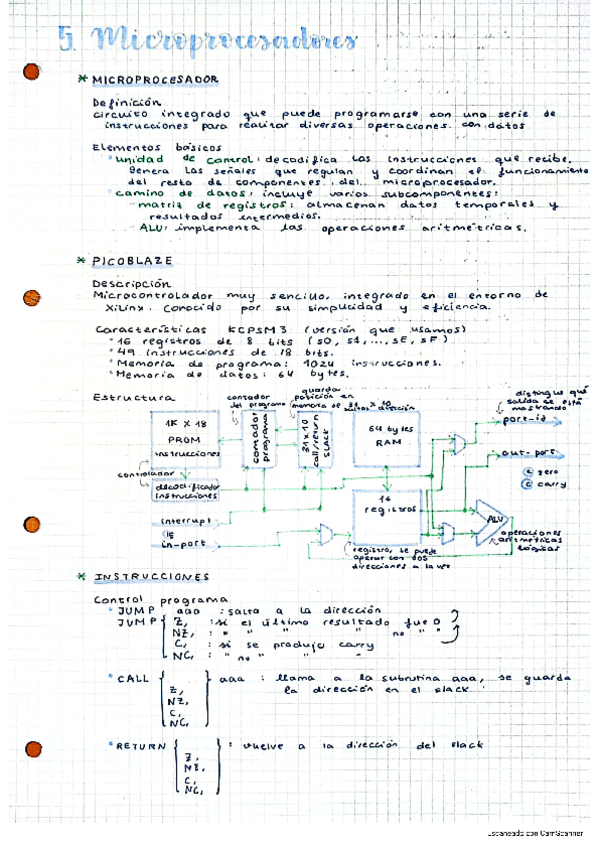 5. Microprocesadores
* MICROPROCESADOR
Definición
circuito integrado que puede programarse con una serie de
instrucciones para realizar diversas operaciones con datos
Elementos básicos
° unidad de control: decodifica las instrucciones que recibe.
Genera las señales que regulan y coordinan el funcionamiento
del resto de componentes del microprocesador.
° camino de datos: incluye varios subcomponentes:
- matriz de registros: almacenan datos temporales y
resultados intermedios.
- ALU: implementa las operaciones aritmétricas.
* PICOBLAZE
Descripción
Microcontrolador muy sencillo, integrado en el entorno de
Xilinx. Conocido por su simplicidad y eficiencia.
Características KCPSM3 (versión que usamos)
° 16 registros de 8 bits (s0, s1, ..., sE, sF)
° 49 instrucciones de 18 bits.
° Memoria de programa: 1024 instrucciones.
° Memoria de datos: 64 bytes.
Estructura
contador
del programa
guarda
posición en
memoria de
31 x 10
distingue qué
salida se está
mostrando
1K X 18
PROM
instrucciones
contador
programa
31x10
call/return
STACK
64 bytes
RAM
port-id
out-port
zero
carry
controlador
decodificador
instrucciones
interrupt
in-port
16
registros
ALU
operaciones
aritméticas
lógicas
registro, se puede
operar con dos
direcciones a la vez
* INSTRUCCIONES
Control programa
° JUMP aaa : salta a la dirección
JUMP { Z, : si el último resultado fue 0
NZ, : " " " no " "
C, : si se produjo carry
NC, : " no " "
° CALL { } aaa : llama a la subrutina aaa, se guarda
la dirección en el stack.
Z,
NZ,
C,
NC,
° RETURN { } : vuelve a la dirección del stack
Z,
NZ,
C,
NC,
Escaneado con CamScanner